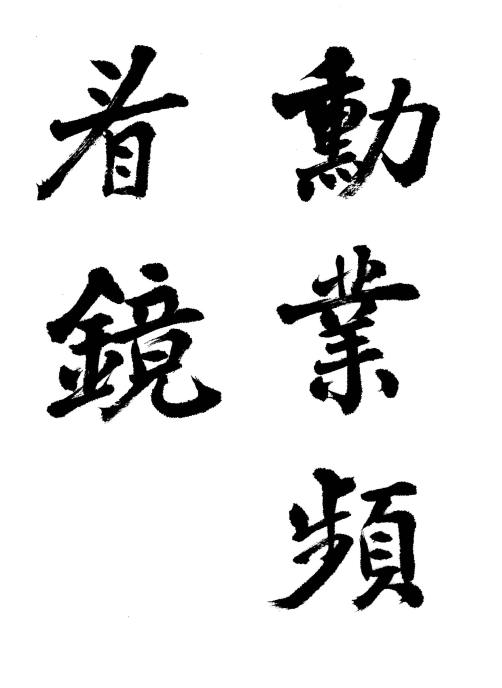 勳業頻
看鏡